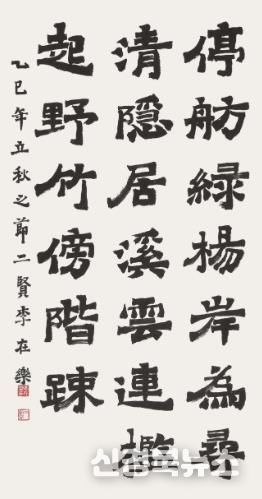 停舫綠楊岸為尋
清隱居溪雲連檻
起野竹傍階踈
乙巳年立秋之節二賢李在樂
신경북뉴스